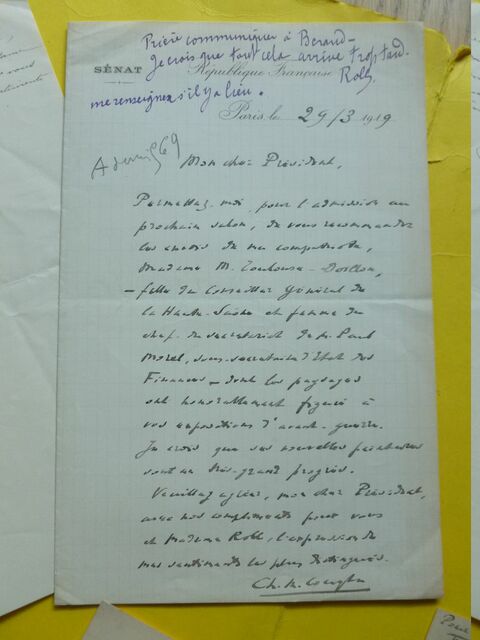 Prière communiquer à Berand –
Je crois que tout cela arrive trop tard.
SÉNAT
République Française
Roll
me renseigner s'il y a lieu.
Paris, le 29/3 1919
69
Mon cher Président,
Permettez-moi, pour l'admission au
prochain salon, de vous recommander
les envois de ma compatriote,
Madame M. Toulouse-Doillon,
– fille du Conseiller Général de
la Haute-Saône et femme du
chef du secrétariat de M. Paul
Morel, sous-secrétaire d'Etat des
Finances – dont les paysages
ont honorablement figuré à
vos expositions d'avant-guerre.
Je crois que ses nouvelles peintures
sont en très-grand progrès.
Veuillez agréer, mon cher Président,
avec nos compliments pour vous
et Madame Roll, l'expression de
mes sentiments les plus distingués.
Ch. M.